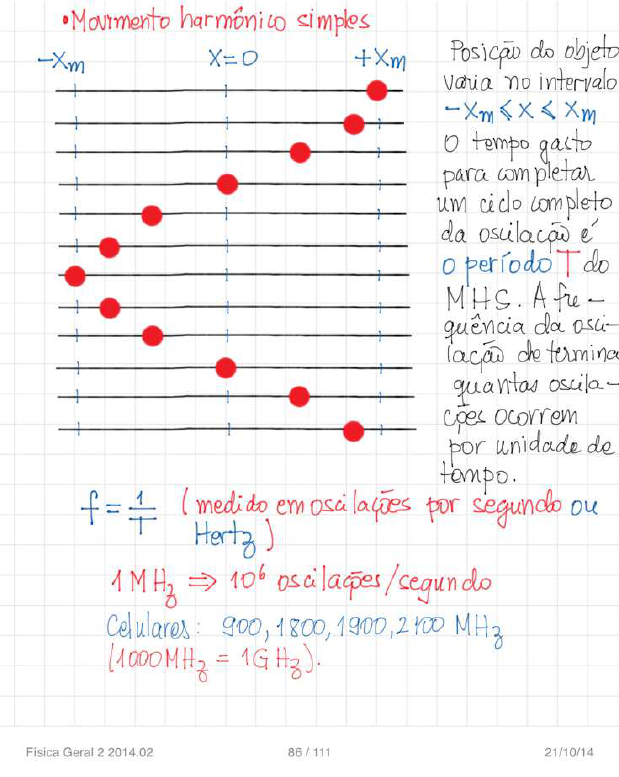 •Movimento harmônico simples
-Xm X=0 +Xm
Posição do objeto
varia no intervalo
-Xm ≤ X ≤ Xm
O tempo gasto
para completar
um ciclo completo
da oscilação é
o período T do
MHS. A fre-
quência da osci-
lação determina
quantas oscila-
ções ocorrem
por unidade de
tempo.
f = 1/T (medido em oscilações por segundo ou
Hertz)
1 MHz ⇒ 10⁶ oscilações/segundo
Celulares: 900, 1800, 1900, 2100 MHz
(1000 MHz = 1 GHz).
Física Geral 2 2014.02 86 / 111 21/10/14